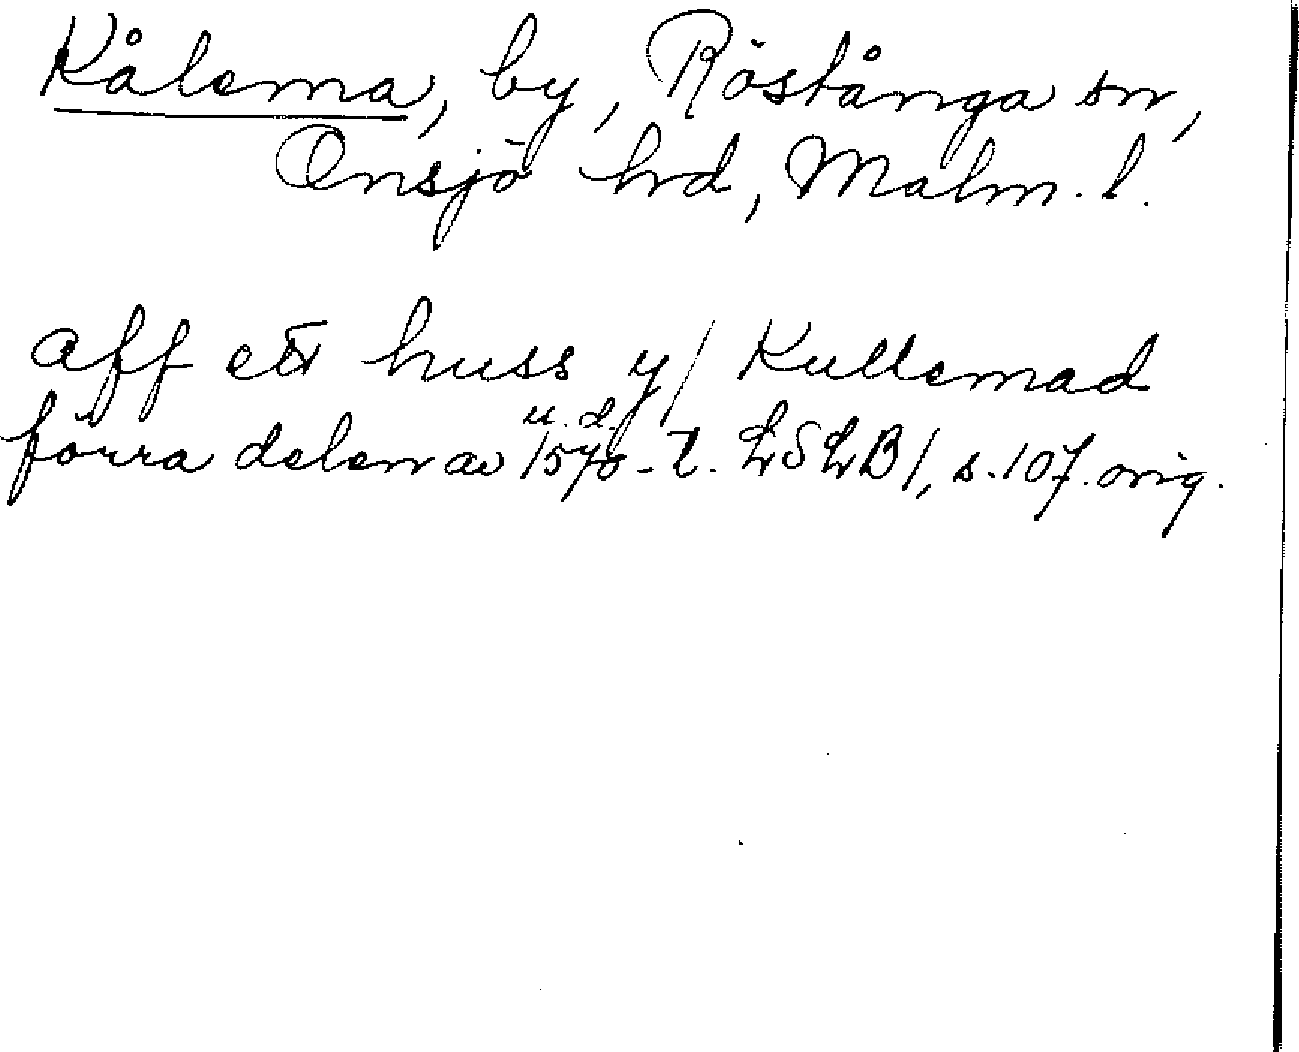 Kålema, by, Röstånga sn,
Onsjö hrd, Malm. l.
aff ett huss y/ Kullemad
u. d.
förra delen av 1570-t. LSLB1, s. 107. orig.